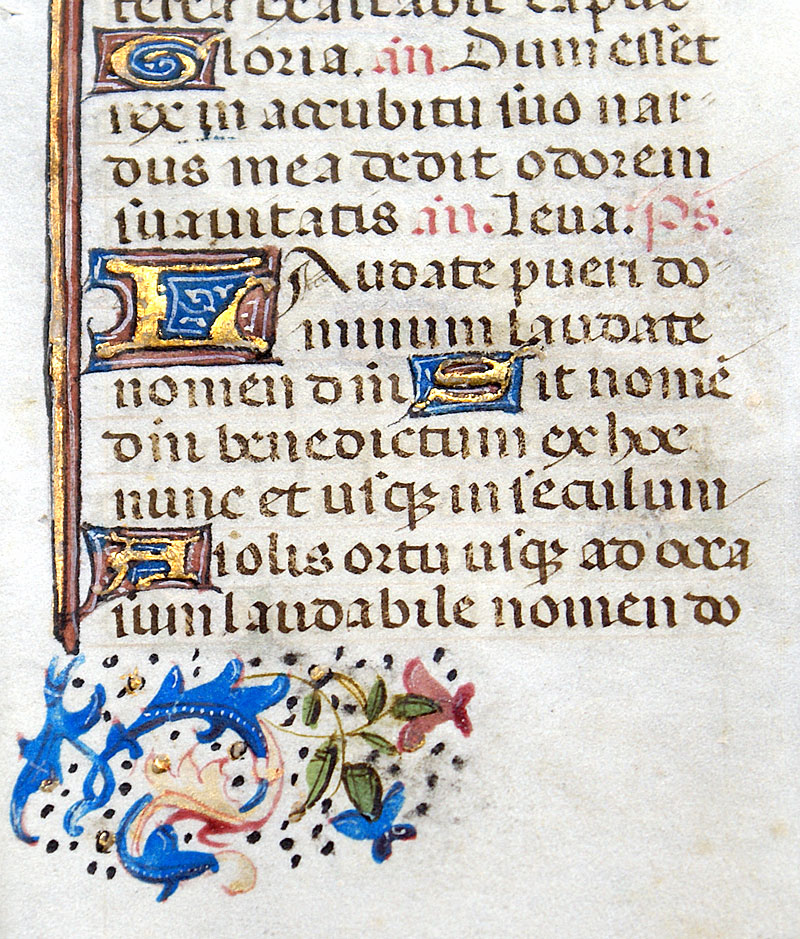 exaltabit
Gloria. an. Dum esset
rex in accubitu suo nar
dus mea dedit odorem
suavitatis an. Leva. ps.
Laudate pueri do
minum laudate
nomen dni Sit nomē
dni benedictum ex hoc
nunc et usq in seculum
A solis ortu usq ad occa
sum laudabile nomen do